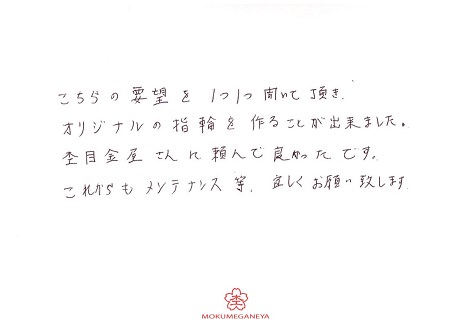 こちらの要望を1つ1つ聞いて頂き、
オリジナルの指輪を作ることが出来ました。
杢目金屋さんに頼んで良かったです。
これからもメンテナンス等、宜しくお願い致します
杢
MOKUMEGANEYA